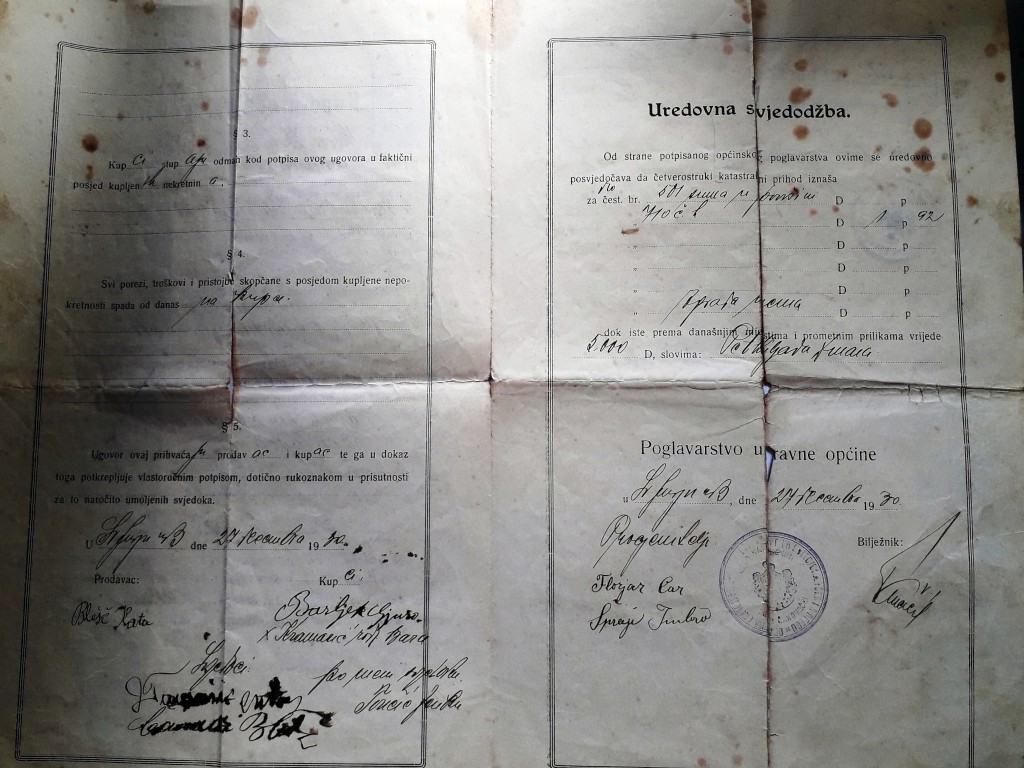 § 3.
Kup ci stup aju odmah kod potpisa ovog ugovora u faktični
posjed kupljen ih nekretnin a.
§ 4.
Svi porezi, troškovi i pristojbe skopčane s posjedom kupljene nepo-
kretnosti spada od danas na kupce.
§ 5.
Ugovor ovaj prihvaća ju prodav ac i kup ac te ga u dokaz
toga potkrepljuje vlastoručnim potpisom, dotično rukoznakom u prisutnosti
za to naročito umoljenih svjedoka.
U dne 27 decembra 1930.
Prodavac:
Kup ci:
Kata
Svjedoci:
Uredovna svjedodžba.
Od strane potpisanog općinskog poglavarstva ovime se uredovno
posvjedočava da četverostruki katastralni prihod iznaša
za čest. br. 501 D p
" D 1 p 92
" D p
" D p
" D p
" zgrada nema D p
dok iste prema današnjim mjestima i prometnim prilikama vrijede
5000 D, slovima: Pet hiljada dinara
Poglavarstvo upravne općine
u , dne 27 decembra 1930.
Procjenitelji
Bilježnik:
Florjan Car